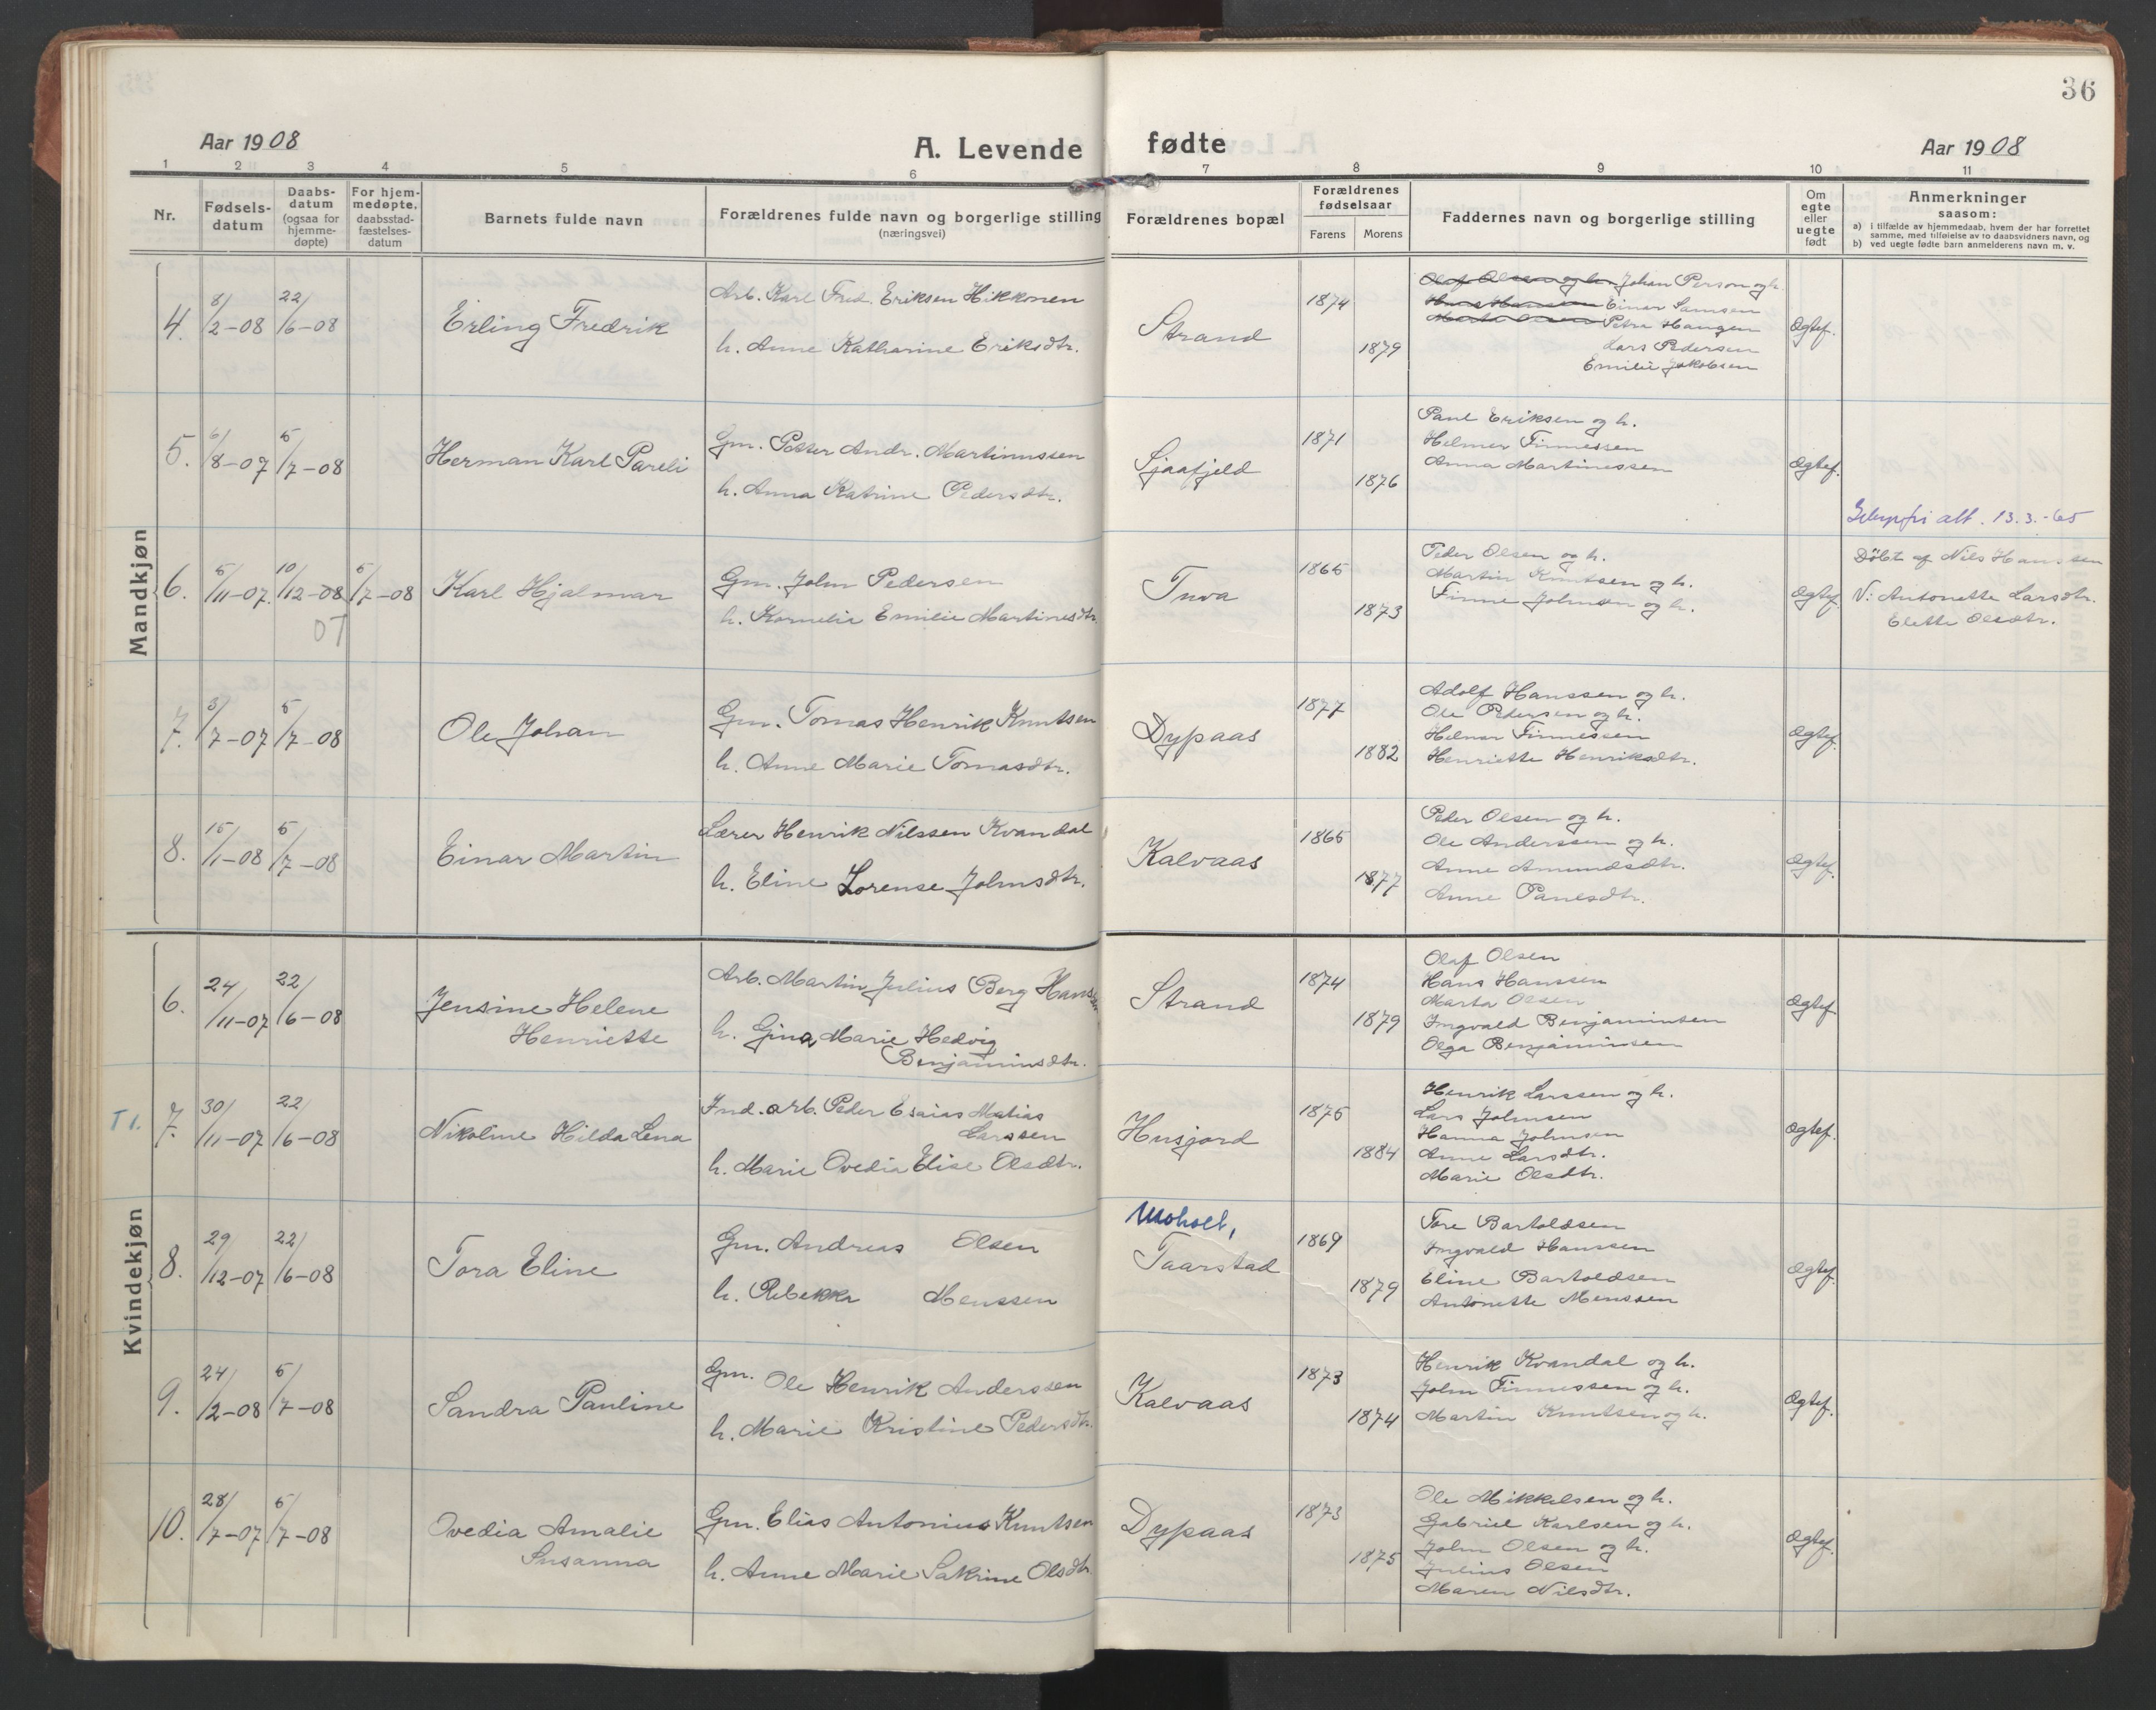 36
Aar 1908
A. Levende fødte
Aar 1908
1 2 3 4 5 6 7 8 9 10 11
Nr.
Fødsels-
datum
Daabs-
datum
(ogsaa for
hjemme-
døpte)
For hjem-
medøpte,
daabsstad-
fæstelses-
datum
Barnets fulde navn
Forældrenes fulde navn og borgerlige stilling
(næringsvei)
Forældrenes bopæl
Forældrenes
fødselsaar
Farens Morens
Faddernes navn og borgerlige stilling
Om
egte
eller
uegte
født
Anmerkninger
saasom:
a) i tilfælde av hjemmedaab, hvem der har forrettet
samme, med tilføielse av to daabsvidners navn, og
b) ved uegte fødte barn anmelderens navn m. v.
Mandkjøn
4.
8/2-08
22/6-08
Erling Fredrik
Arb. Karl Fred. Eriksen Hikkonen
h. Anne Katharine Eriksdtr.
Strand
1874
1879
Olaf Olsen og h. Johan Person og h.
Hans Hanssen Einar Samsen
Marta Olsen Petra Haugen
Lars Pedersen
Emilie Jakobsen
Ægtef.
5.
6/8-07
5/7-08
Herman Karl Pareli
Gm. Petter Andr. Martinussen
h. Anna Katrine Pedersdtr.
Sjaafjeld
1871
1876
Paul Eriksen og h.
Helmer Finnessen
Anna Martinessen
Ægtef.
alt. 13.3.-65
6.
5/11-07.
10/12-08
07
5/7-08
Karl Hjalmar
Gm. John Pedersen
h. Kornelie Emilie Martinesdtr.
Tuva
1865
1873
Peder Olsen og h.
Martin Knutsen og h.
Finne Johnsen og h.
Ægtef.
Døbt af Nils Hanssen
V: Antonette Larsdtr.
Elette Olsdtr.
7.
3/7-07
5/7-08
Ole Johan
Gm. Tomas Henrik Knutsen
h. Anne Marie Tomasdtr.
Dypaas
1877
1882
Adolf Hanssen og h.
Ole Pedersen og h.
Helmer Finnessen
Henriette Henriksdtr.
Ægtef.
8.
15/1-08
5/7-08
Einar Martin
Lærer Henrik Nilssen Kvandal
h. Eline Lorense Johnsdtr.
Kalvaas
1865
1877
Peder Olsen og h.
Ole Anderssen og h.
Anne Amundsdtr.
Anne Paulsdtr.
Ægtef.
Kvindekjøn
6.
24/11-07
22/6-08
Jensine Helene
Henriette
Arb. Martin Julius Berg Hanssen
h. Gina Marie Hedvig
Benjaminsdtr.
Strand
1874
1879
Olaf Olsen
Hans Hanssen
Marta Olsen
Ingvald Benjaminsen
Olga Benjaminsen
Ægtef.
T1.
7.
30/11-07
22/6-08
Nikoline Hilda Lena
Ind. arb. Peder Esaias Matias
Larssen
h. Marie Ovedia Elise Olsdtr.
Husjord
1875
1884
Henrik Larssen og h.
Lars Johnsen
Hanna Johnsen
Anne Larsdtr.
Marie Olsdtr.
Ægtef.
8.
29/12-07
22/6-08
Tora Eline
Gm. Andreas Olsen
h. Rebekka Menssen
Moholt,
Taarstad
1869
1879
Tore Bartoldsen
Ingvald Hanssen
Eline Bartoldsen
Antonette Menssen
Ægtef.
9.
24/2-08
5/7-08
Sandra Pauline
Gm. Ole Henrik Anderssen
h. Marie Kristine Pedersdtr.
Kalvaas
1873
1874
Henrik Kvandal og h.
John Finnessen og h.
Martin Knutsen og h.
Ægtef.
10.
28/7-07
5/7-08
Ovedia Amalie
Susanna
Gm. Elias Antonius Knutsen
h. Anne Marie Sakrine Olsdtr.
Dypaas
1873
1875
Ole Mikkelsen og h.
Gabriel Karlsen og h.
John Olsen og h.
Julius Olsen
Maren Nilsdtr.
Ægtef.